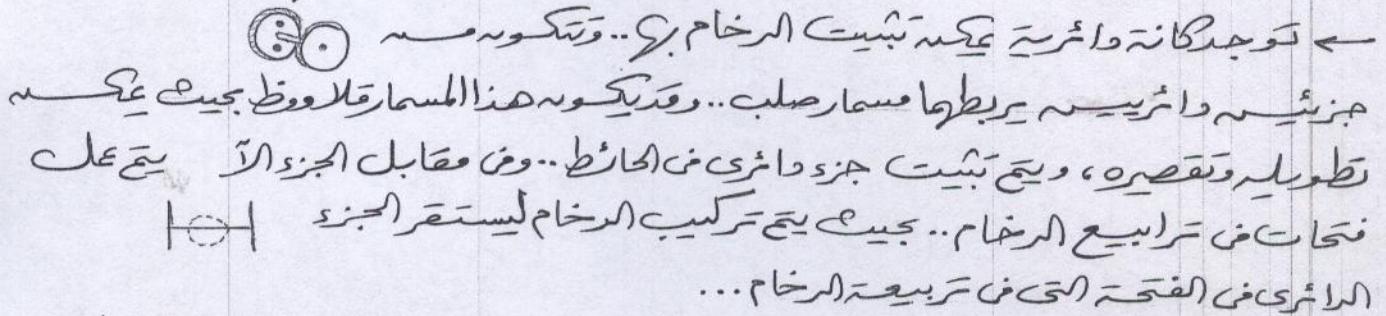 ← توجد كانة دائرية يمكن تثبيت الرخام بها.. وتتكون من
جزئين دائريين يربطهما مسمار صلب.. وقد يكون هذا المسمار قلاووظ بحيث يمكن
تطويله وتقصيره، ويتم تثبيت جزء دائرى فى الحائط.. وفى مقابل الجزء الآ يتم عمل
فتحات فى ترابيع الرخام.. بحيث يتم تركيب الرخام ليستقر الجزء
الدائرى فى الفتحة التى فى تربيعة الرخام...